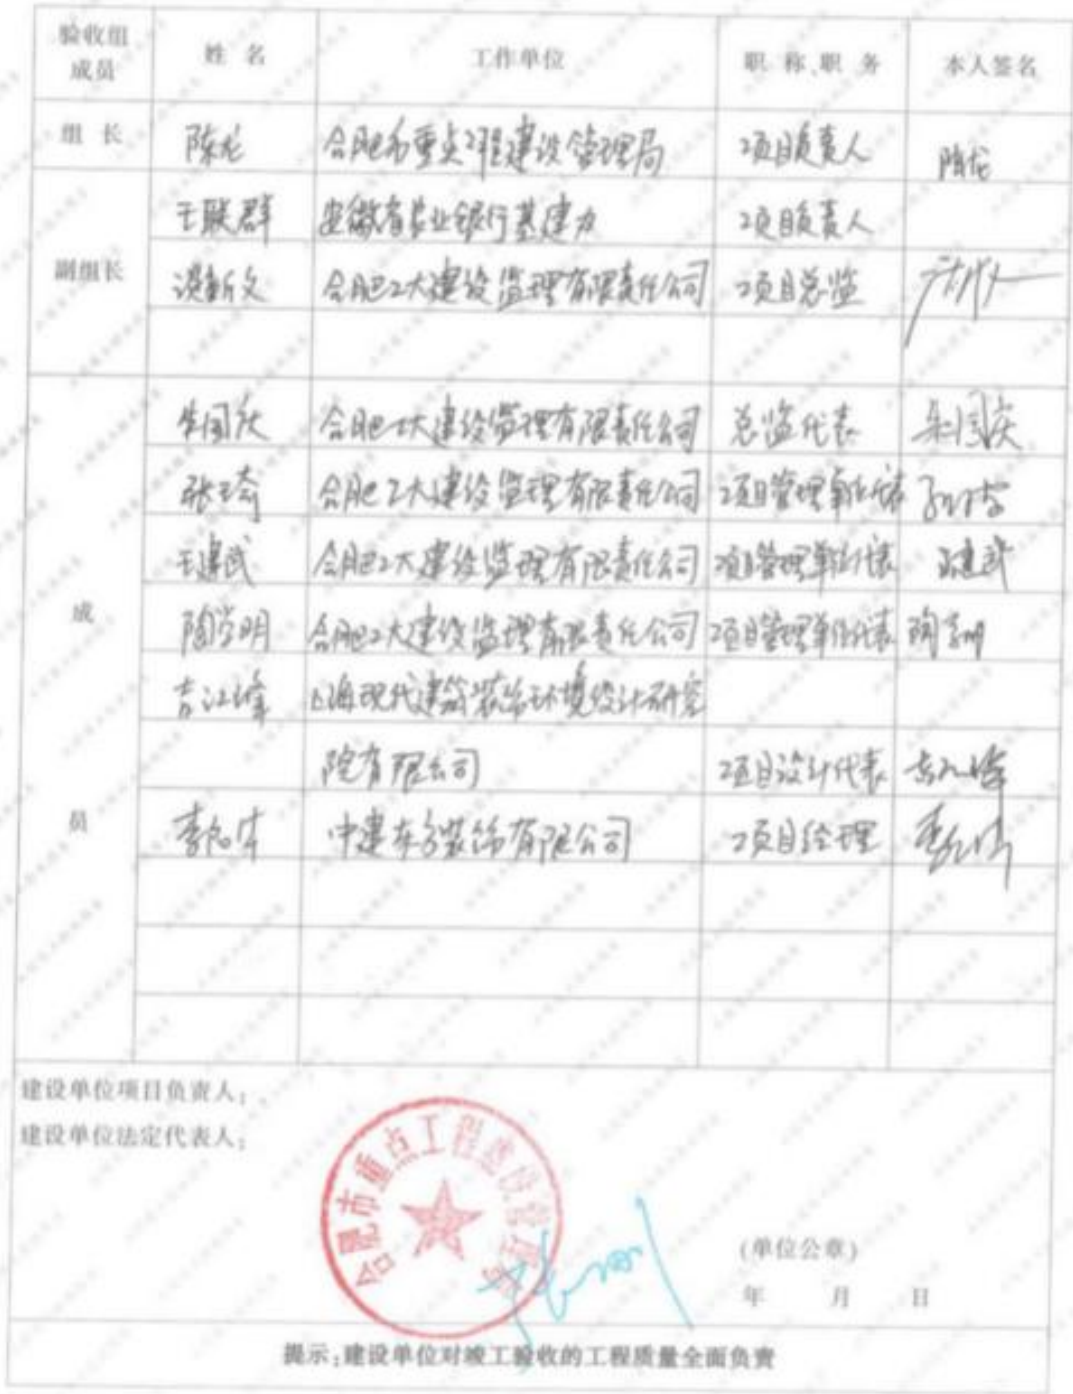 验收组成员 姓 名 工作单位 职 称、职 务 本人签名
组 长 陈龙 合肥市重点工程建设管理局 项目负责人 陈龙
王联群 安徽省农业银行基建办 项目负责人
副组长 谈新文 合肥工大建设监理有限责任公司 项目总监
朱国庆 合肥工大建设监理有限责任公司 总监代表 朱国庆
张琦 合肥工大建设监理有限责任公司 项目管理单位代表
王建武 合肥工大建设监理有限责任公司 项目管理单位代表 王建武
成 陶学明 合肥工大建设监理有限责任公司 项目管理单位代表
吉江峰 上海现代建筑装饰环境设计研究
院有限公司 项目设计代表 吉江峰
员 中建东方装饰有限公司 项目经理
建设单位项目负责人：
建设单位法定代表人：
合肥市重点工程建设管理局
(单位公章)
年 月 日
提示：建设单位对竣工验收的工程质量全面负责